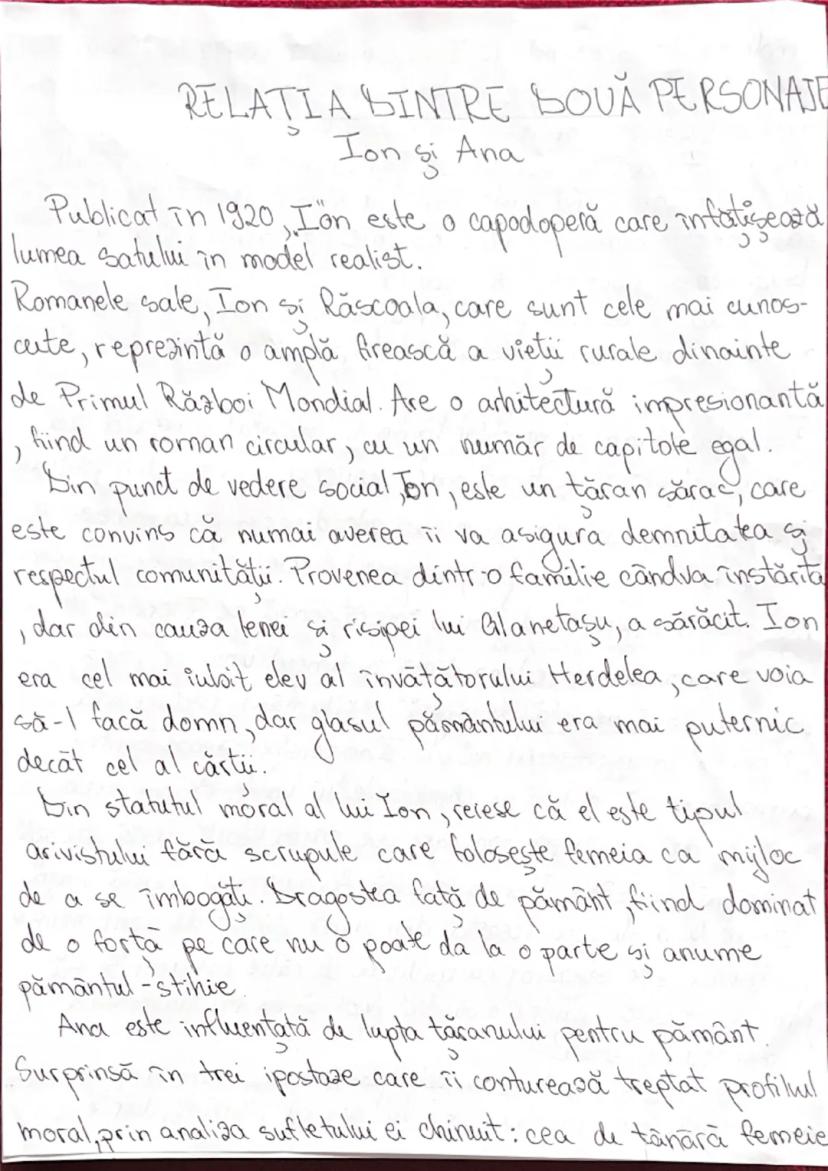 RELAȚIA DINTRE DOUĂ PERSONAJE
Ion și Ana
Publicat în 1920, „Ion" este o capodoperă care înfățișează
lumea satului în model realist.
Romanele sale, Ion și Răscoala, care sunt cele mai cunos-
cute, reprezintă o amplă firească a vieții rurale dinainte
de Primul Război Mondial. Are o arhitectură impresionantă
, fiind un roman circular, cu un număr de capitole egal.
Din punct de vedere social, Ion, este un țăran sărac, care
este convins că numai averea îi va asigura demnitatea și
respectul comunității. Provenea dintr-o familie cândva înstărită
, dar din cauza lenei și risipei lui Glanetașu, a sărăcit. Ion
era cel mai iubit elev al învățătorului Herdelea, care voia
să-l facă domn, dar glasul pământului era mai puternic
decât cel al cărții.
Din statutul moral al lui Ion, reiese că el este tipul
arivistului fără scrupule care folosește femeia ca mijloc
de a se îmbogăți. Dragostea față de pământ, fiind dominat
de o forță pe care nu o poate da la o parte și anume
pământul-stihie
Ana este influențată de lupta țăranului pentru pământ.
Surprinsă în trei ipostaze care îi conturează treptat profilul
moral, prin analiza sufletului ei chinuit: cea de tânără femeie